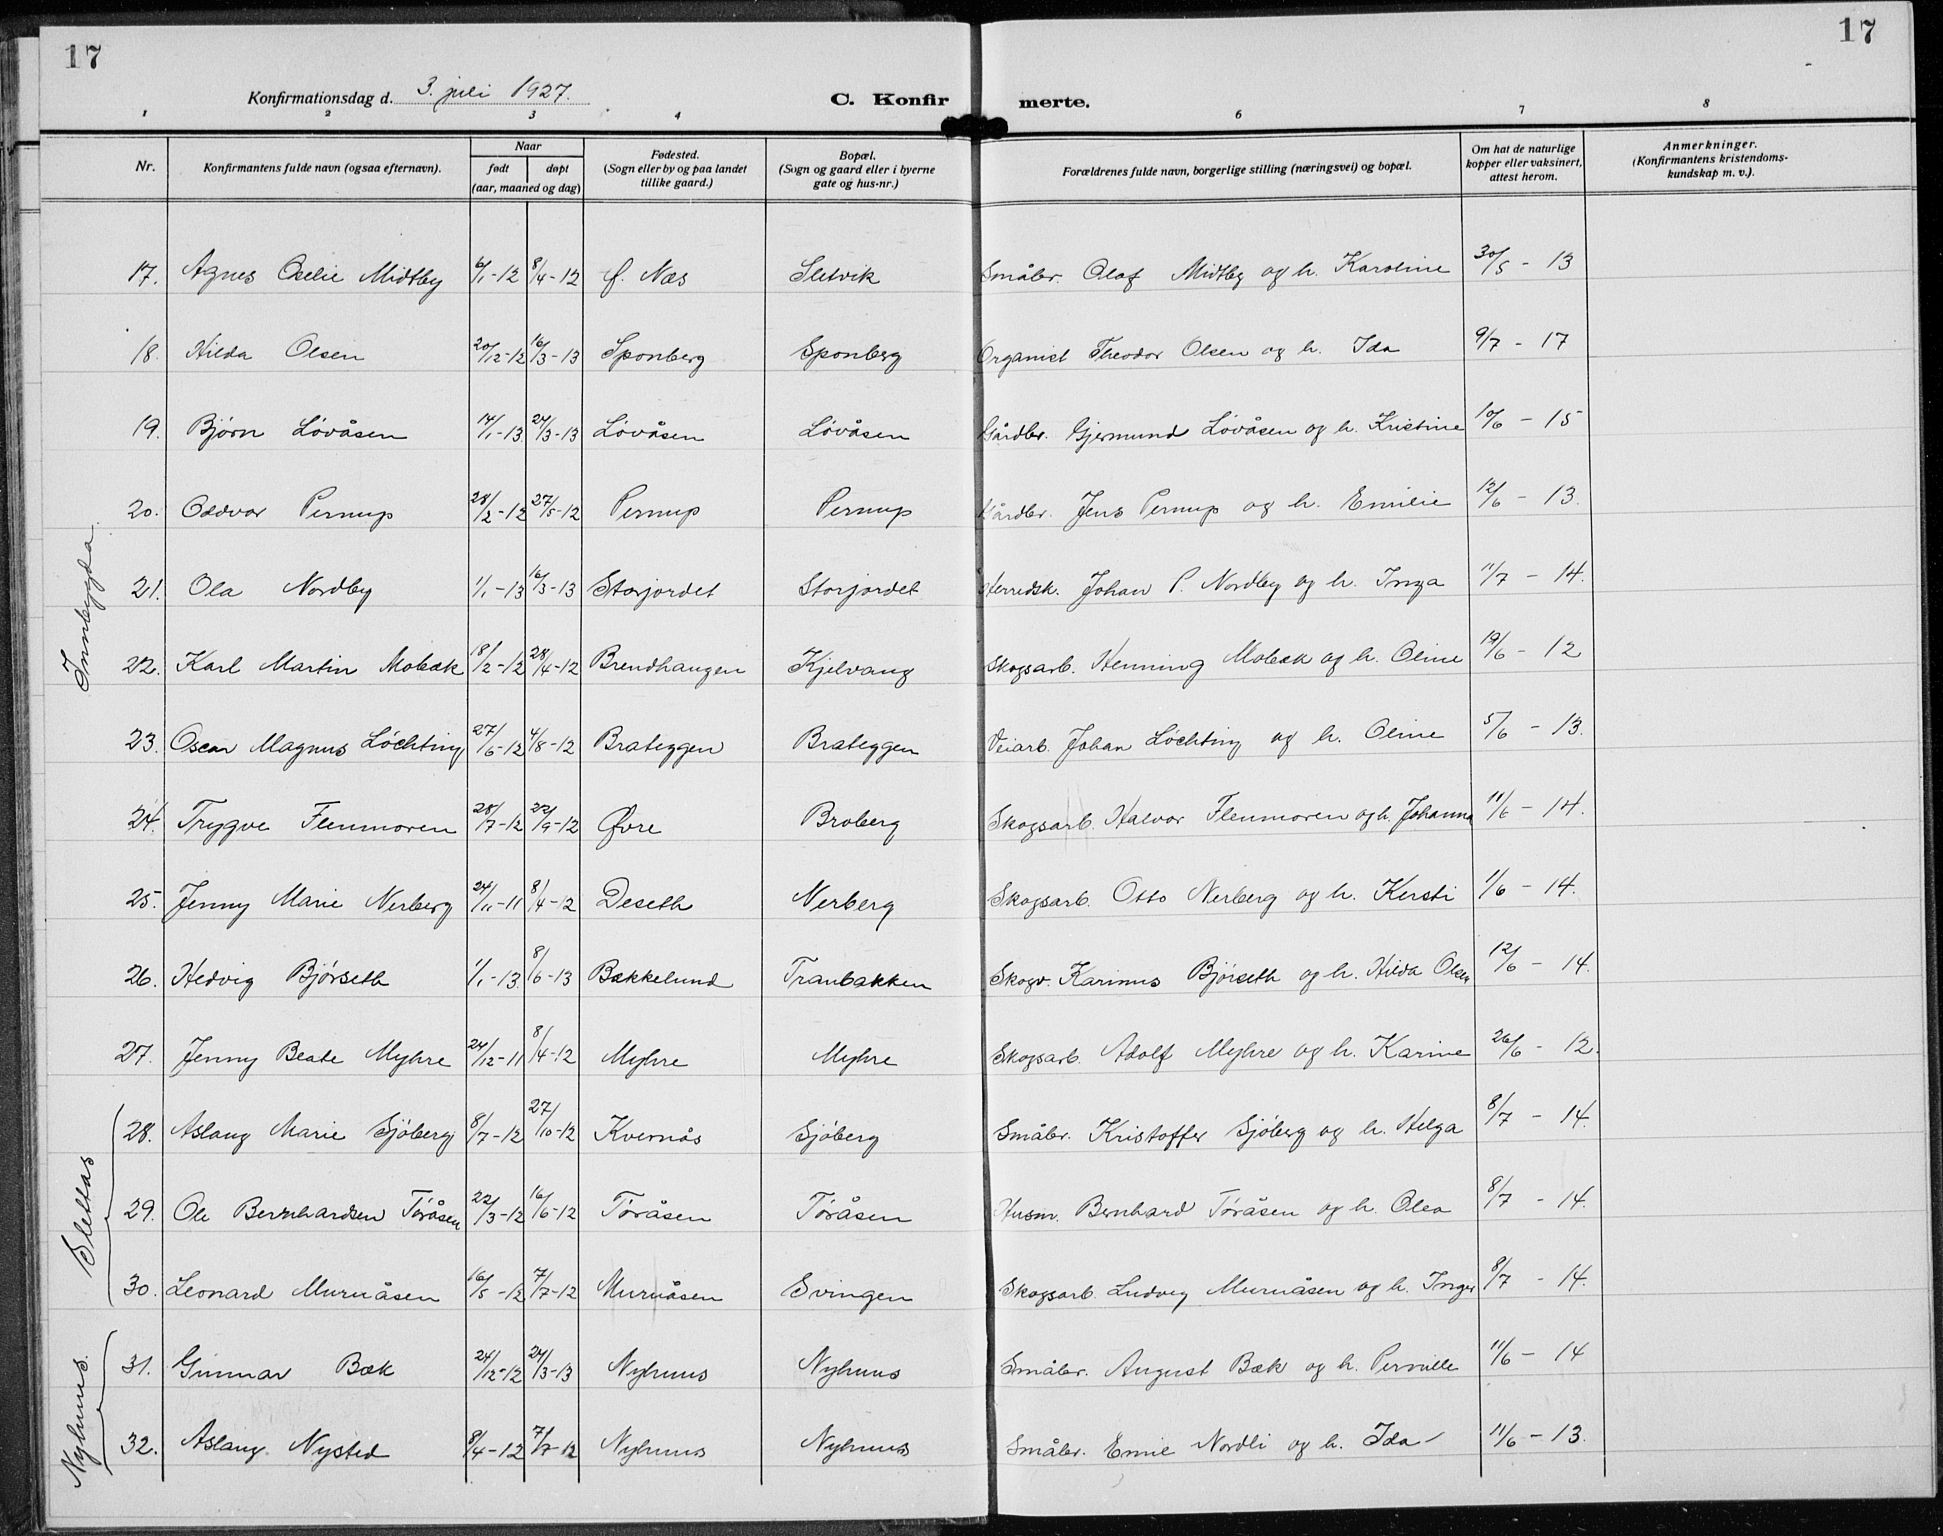 17
17
Konfirmationsdag d. 3. juli 1927.
C. Konfir merte.
1 2 3 4 6 7 8
Nr.
Konfirmantens fulde navn (ogsaa efternavn).
Naar
født
døpt
(aar, maaned og dag)
Fødested.
(Sogn eller by og paa landet
tillike gaard.)
Bopæl.
(Sogn og gaard eller i byerne
gate og hus-nr.)
Forældrenes fulde navn, borgerlige stilling (næringsvei) og bopæl.
Om hat de naturlige
kopper eller vaksinert,
attest herom.
Anmerkninger.
(Konfirmantens kristendoms-
kundskap m. v.).
17. Agnes Oselie Midtby 6/1-12 8/4-12 f. Næs Sletvik Småbr. Olaf Midtby og h. Karoline 30/5 - 13
18. Hilda Olsen 20/12-12 16/3-13 Sponberg Sponberg Organist Theodor Olsen og h. Ida 9/7 - 17
19. Bjørn Løvåsen 14/1-13 24/3-13 Løvåsen Løvåsen Gårdbr. Gjermund Løvåsen og h. Kristine 10/6 - 15
20. Oddvar Pernup 28/2-12 27/5-12 Pernup Pernup Gårdbr. Jens Pernup og h. Emilie 12/6 - 13.
Innbygda
21. Ola Nordby 1/1-13 16/3-13 Storjordet Storjordet Herredsk. Johan P. Nordby og h. Inga 11/7 - 14.
22. Karl Martin Mobæk 18/2-12 28/4-12 Brendhaugen Kjelvang Skogsarb. Henning Mobæk og h. Oline 19/6 - 12
23. Oscar Magnus Løchting 27/6-12 4/8-12 Brateggen Brateggen Veiarb. Johan Løchting og h. Oline 5/6 - 13.
24. Trygve Flenmoren 28/7-12 22/9-12 Øvre Broberg Skogsarb. Halvor Flenmoren og h. Johanna 11/6 - 14.
25. Jenny Marie Nerberg 24/11-11 8/4-12 Deseth Nerberg Skogsarb. Otto Nerberg og h. Kersti 1/6 - 14.
26. Hedvig Bjørseth 1/1-13 8/6-13 Bækkelund Tranbakken Skogv. Karinus Bjørseth og h. Hilda Olsen 12/6 - 14.
27. Jenny Beate Myhre 24/12-11 8/4-12 Myhre Myhre Skogsarb. Adolf Myhre og h. Karine 26/6 - 12.
Plettas
28. Aslaug Marie Sjöberg 8/7-12 27/10-12 Kvernås Sjöberg Småbr. Kristoffer Sjöberg og h. Helga 8/7 - 14.
29. Ole Bernhardsen Töråsen 22/3-12 16/6-12 Töråsen Töråsen Husm. Bernhard Töråsen og h. Olea 8/7 - 14.
30. Leonard Muruåsen 16/5-12 7/7-12 Muruåsen Svingen Skogsarb. Ludvig Muruåsen og h. Inger 8/7 - 14.
Nyhuus.
31. Gunnar Bæk 24/12-12 24/3-13 Nyhuus Nyhuus Småbr. August Bæk og h. Pernille 11/6 - 14
32. Aslaug Nysted 8/4-12 7/7-12 Nyhuus Nyhuus Småbr. Emil Nordli og h. Ida 11/6 - 13.